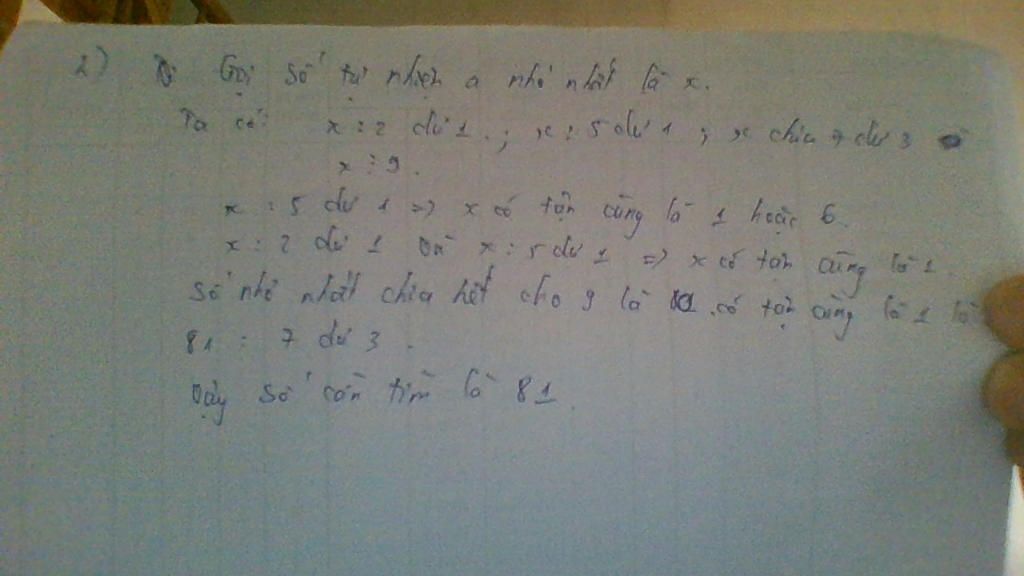 2) Gọi số tự nhiên a nhỏ nhất là x.
Ta có: x : 2 dư 1 ; x : 5 dư 1 ; x chia 7 dư 3
x ⋮ 9.
x : 5 dư 1 => x có tận cùng là 1 hoặc 6.
x : 2 dư 1 và x : 5 dư 1 => x có tận cùng là 1.
Số nhỏ nhất chia hết cho 9 là có tận cùng là 1 là
81 : 7 dư 3.
Vậy số cần tìm là 81.